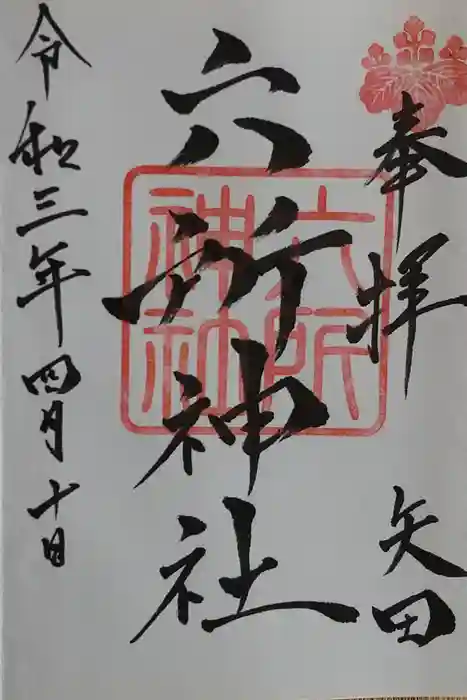 奉拝
矢田
六所神社
六所
神社
令和三年四月十日